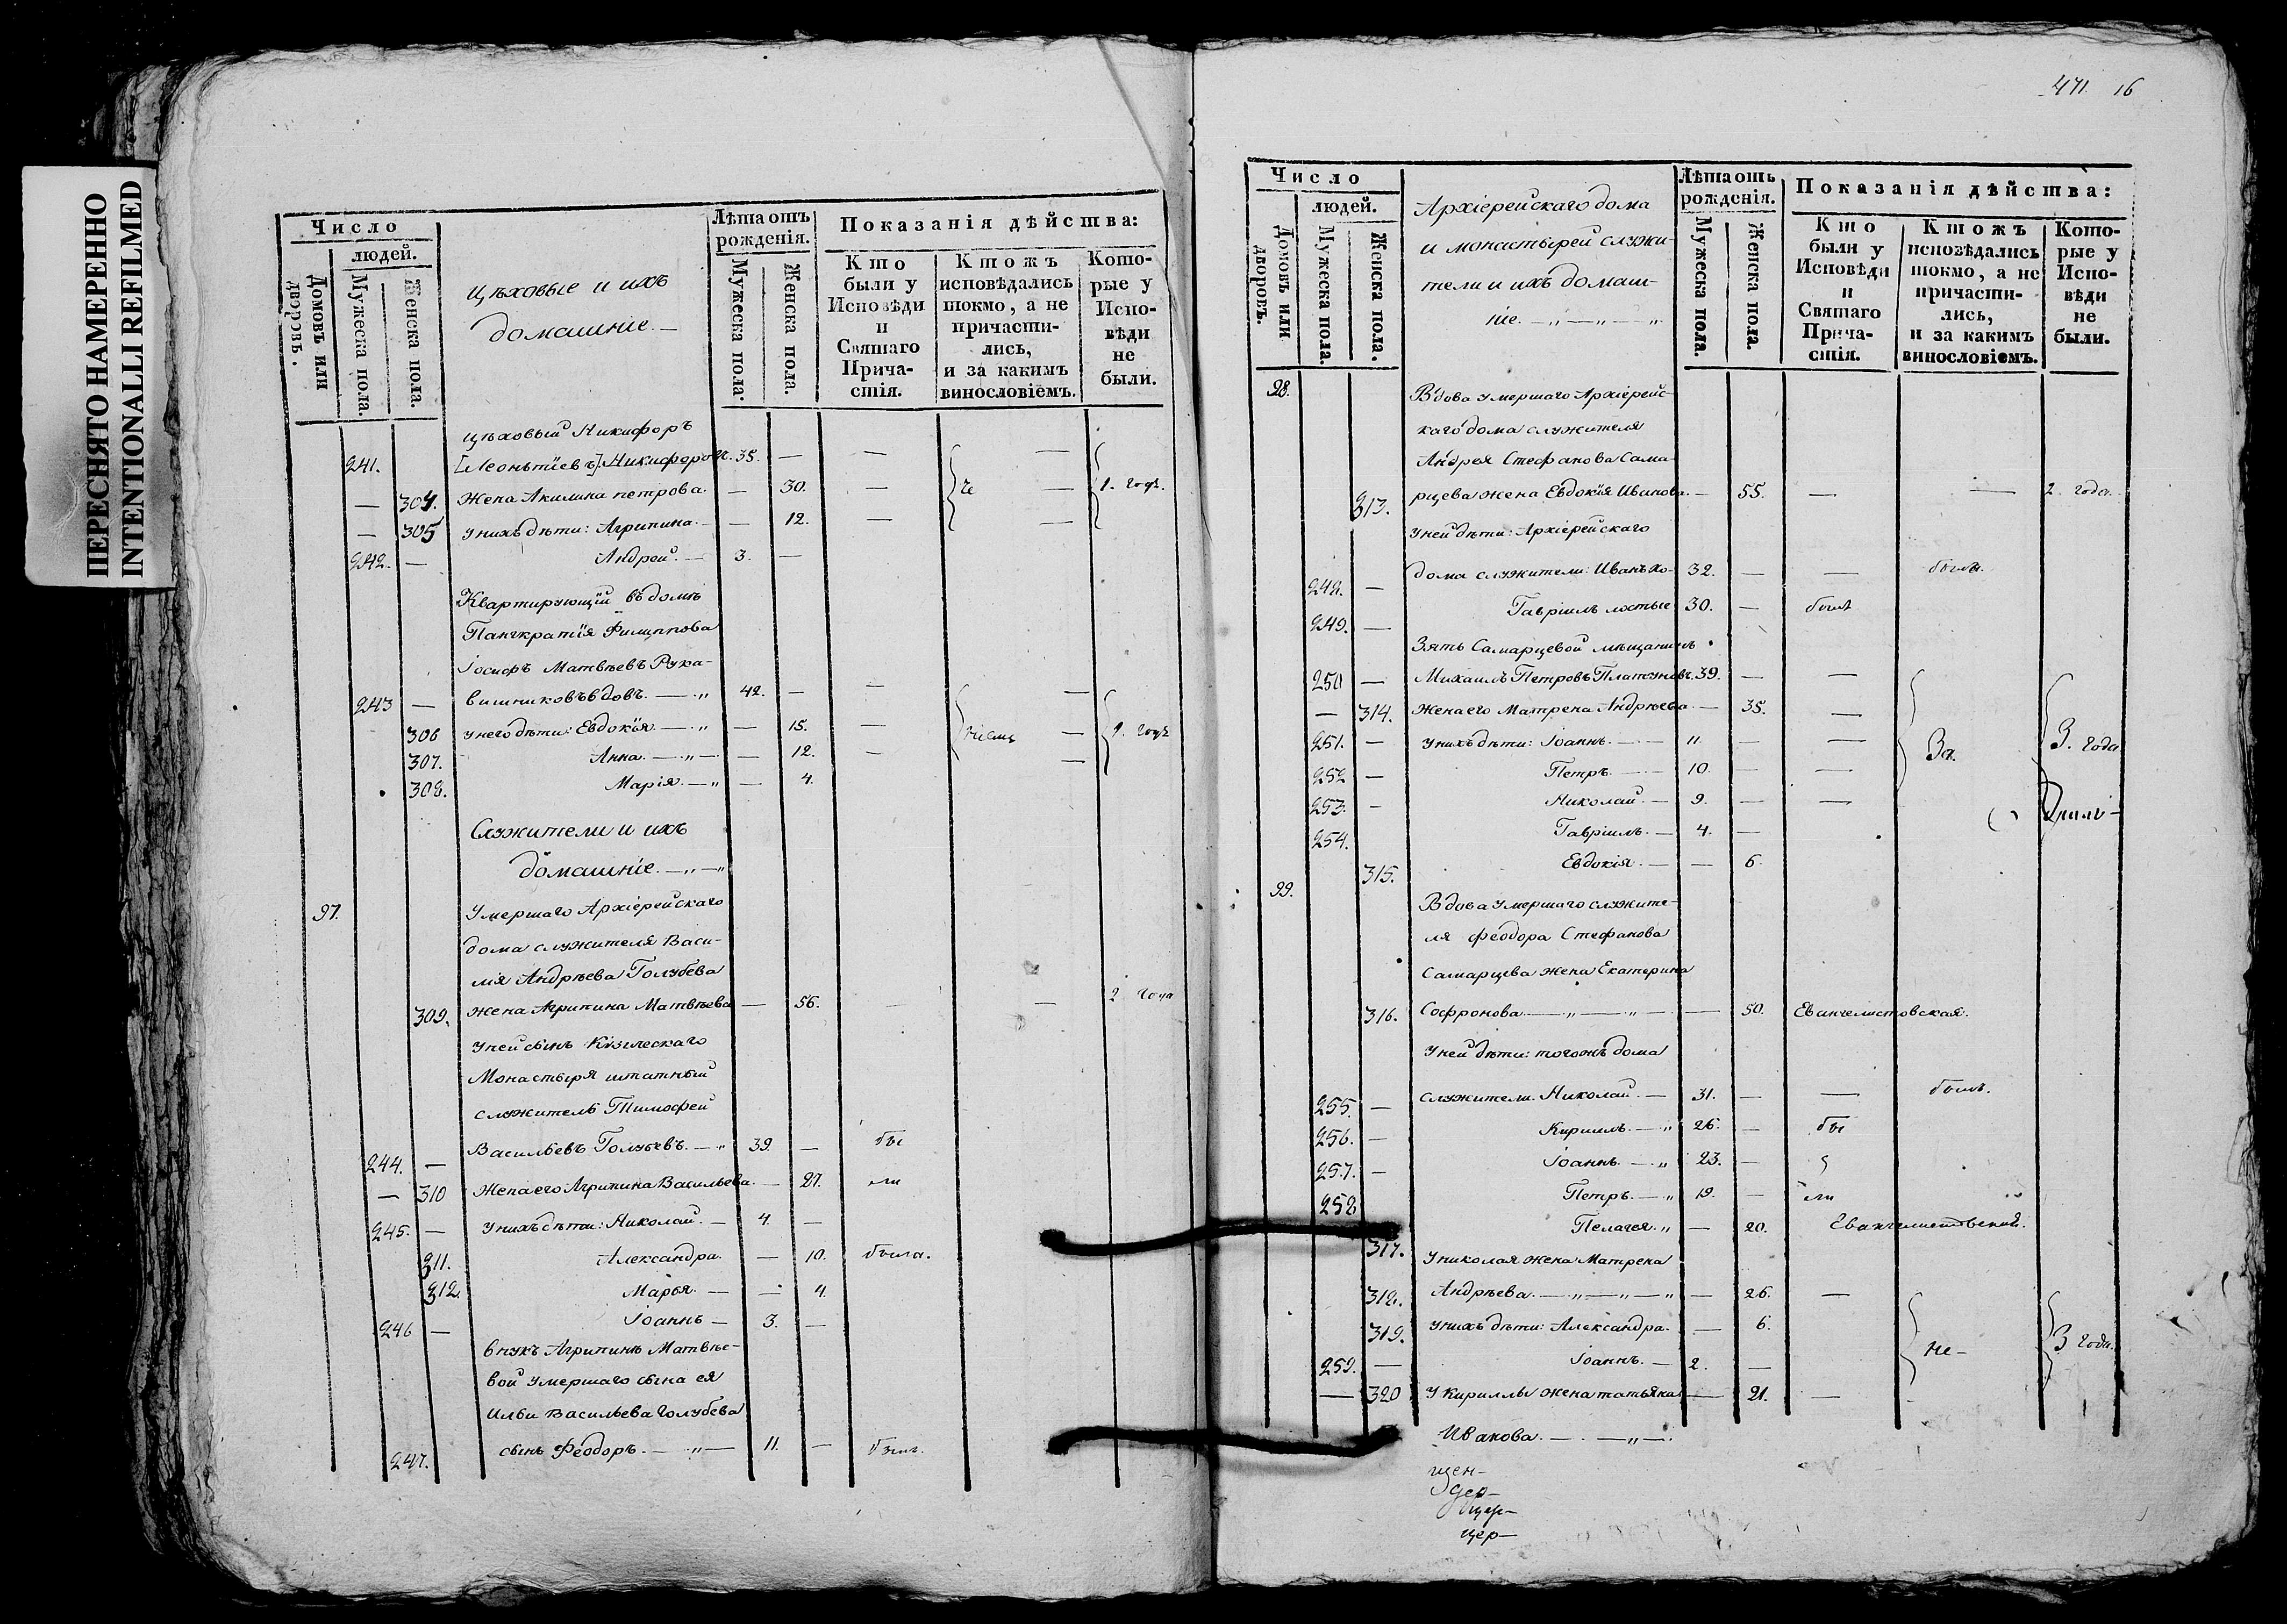 ПЕРЕСНЯТО НАМЕРЕННО
INTENTIONALLI REFILMED
Число
людей.
Домовъ или дворовъ.
Мужеска пола.
Женска пола.
Цѣховые и ихъ
домашніе. —
Лѣта отъ
рожденія.
Мужеска пола.
Женска пола.
Показанія дѣйства:
Кто
были у
Исповѣди
и
Святаго
Прича-
стія.
Ктожъ
исповѣдались
токмо, а не
причасти-
лись,
и за какимъ
винословіемъ.
Кото-
рые у
Испо-
вѣди
не
были.
цѣховый Никифоръ
241. [Леонтіевъ] Никифоровъ. 35. — — —
— 304. Жена Акилина петрова. — 30. — — 1. годъ.
— 305 у нихъ дѣти: Агрипина. — — 12. — —
242. — Андрей. — 3. —
Квартирующій въ домѣ
Панкратія Филиппова
Іосифъ Матвѣевъ Рука-
243 — вишниковъ вдовъ. — „ 42. — — —
306 у него дѣти: Евдокія. — „ — 15. — — 1. годъ
307. Анна. — „ — — 12. — —
308. Марія. — „ — 4.
Служители и ихъ
домашніе. — „ — „
97. Умершаго Архіерейскаго
дома служителя Васи-
лія Андрѣева Голубева
309. жена Агрипина Матвѣева — 56. — — 2 года
у ней сынъ Кизическаго
Монастыря штатный
служитель Тимофей
244. — Васильевъ Голубевъ. — „ 39. — бы
— 310 Жена его Агрипина Васильева. — 27. ли
245. — у нихъ дѣти: Николай. — 4. —
311. Александра. — 10. была.
312. Марья. — — 4.
246 — Іоаннъ — 3. —
внукъ Агрипины Матвѣе-
вой умершаго сына ея
Ильи Васильева Голубева
247. сынъ Феодоръ. — „ — 11. — былъ.
471 16
Число
людей.
Домовъ или дворовъ.
Мужеска пола.
Женска пола.
Архіерейскаго дома
и монастырей служи-
тели и ихъ домаш-
ніе. — „ — „ — „
Лѣта отъ
рожденія.
Мужеска пола.
Женска пола.
Показанія дѣйства:
Кто
были у
Исповѣди
и
Святаго
Прича-
стія.
Ктожъ
исповѣдались
токмо, а не
причасти-
лись,
и за какимъ
винословіемъ.
Кото-
рые у
Испо-
вѣди
не
были.
98. Вдова умершаго Архіерейс-
каго дома служителя
Андрея Стефанова Сама-
313. рцева жена Евдокія Иванова. — 55. — — 2. года.
у ней дѣти: Архіерейскаго
248. — дома служители: Иванъ хо- 32. — —
249. — Гавріилъ лостые 30. — былъ
Зять Самарцевой мѣщанинъ
250 — Михаилъ Петровъ Платуновъ. 39. — —
— 314. Жена его Матрена Андрѣева. — 35. —
251. — у нихъ дѣти: Іоаннъ. — 11. — — За. 3. года
252 — Петръ. — 10. — —
253. — Николай. — 9. — —
254. Гавріилъ. — 4. —
315. Евдокія. — — 6.
99. Вдова умершаго служите-
ля Феодора Стефанова
Самарцева жена Екатерина
316. Софронова — „ — „ — — 50. Евангелистовская.
у ней дѣти: того жъ дома
255. — служители. Николай. — 31. — — былъ.
256. — Кириллъ. — „ 26. — бы
257. — Іоаннъ. — „ 23. —
258 Петръ. — „ 19. — ли
317. Пелагея. „ — 20.
у николая жена Матрена
318. Андрѣева. — „ — „ — „ — 26. —
319. у нихъ дѣти: Александра. — 6.
259. — Іоаннъ. — 2. — не- 3 года.
— 320 у Кириллы жена татьяна — 21. —
Иванова. — . — „ — .